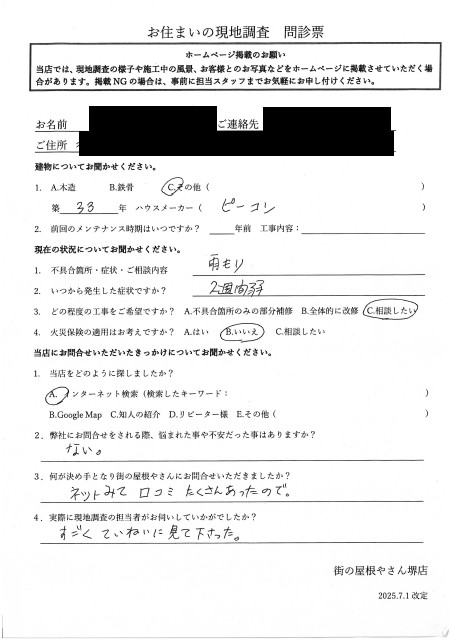 お住まいの現地調査 問診票
ホームページ掲載のお願い
当店では、現地調査の様子や施工中の風景、お客様とのお写真などをホームページに掲載させていただく場
合があります。掲載 NG の場合は、事前に担当スタッフまでお気軽にお申し付けください。
お名前 ご連絡先
ご住所
建物についてお聞かせください。
1. A.木造 B.鉄骨 C.その他（ ）
築 33 年 ハウスメーカー（ ピーコン ）
2. 前回のメンテナンス時期はいつですか？ 年前 工事内容：
現在の状況についてお聞かせください。
1. 不具合箇所・症状・ご相談内容 雨もり
2. いつから発生した症状ですか？ 2週間弱
3. どの程度の工事をご希望ですか？ A.不具合箇所のみの部分補修 B.全体的に改修 C.相談したい
4. 火災保険の適用はお考えですか？ A.はい B.いいえ C.相談したい
当店にお問合せいただいたきっかけについてお聞かせください。
1. 当店をどのように探しましたか？
A. インターネット検索（検索したキーワード： ）
B.Google Map C.知人の紹介 D.リピーター様 E.その他（ ）
2．弊社にお問合せをされる際、悩まれた事や不安だった事はありますか？
ない。
3．何が決め手となり街の屋根やさんにお問合せいただきましたか？
ネットみて 口コミ たくさんあったので。
4．実際に現地調査の担当者がお伺いしていかがでしたか？
すごく ていねいに見て下さった。
街の屋根やさん堺店
2025.7.1 改定